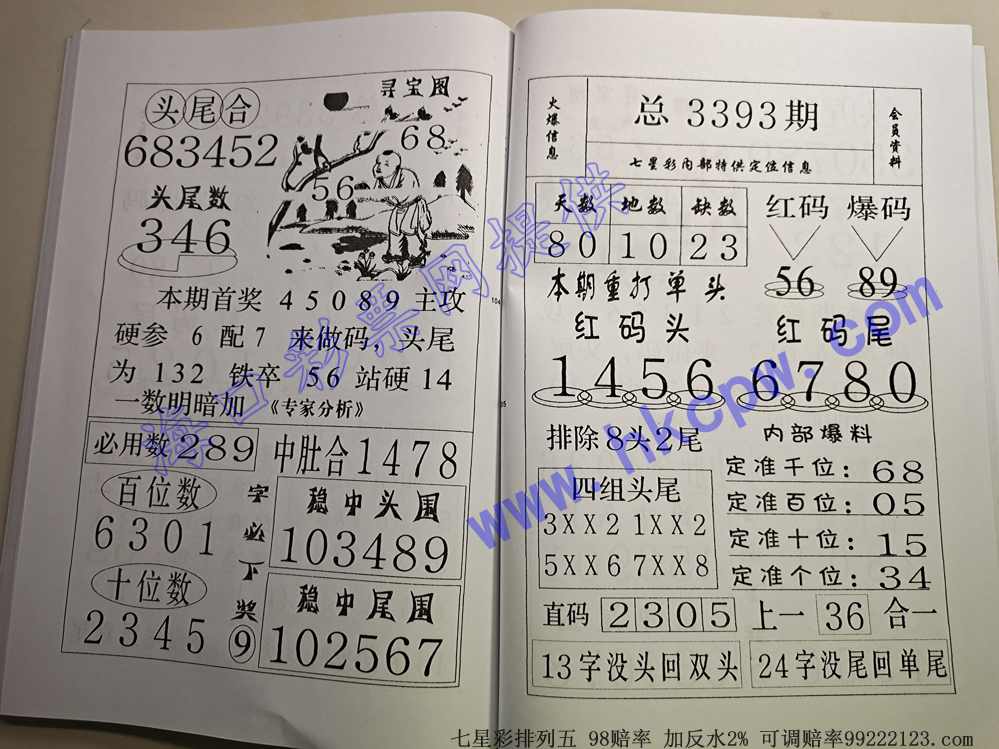 头尾合
683452
寻宝图
68
56
头尾数
346
本期首奖 45089 主攻
硬参 6 配 7 来做码，头尾
为 132 铁卒 56 站硬 14
一数明暗加 《专家分析》
必用数 289
中肚合 1478
百位数
6301
十位数
2345
字必下奖⑨
稳中头围
103489
稳中尾围
102567
104
火爆信息
总 3393期
七星彩内部特供定位信息
会员资料
天数 地数 缺数
80 10 23
红码 爆码
56 89
本期重打单头
红码头
1456
红码尾
6780
排除8头2尾
四组头尾
3XX2 1XX2
5XX6 7XX8
内部爆料
定准千位：68
定准百位：05
定准十位：15
定准个位：34
直码 2305 上一 36 合一
13字没头回双头
24字没尾回单尾
海口彩票网提供
www.hkcpw.com
七星彩排列五 98赔率 加反水2% 可调赔率99222123.com